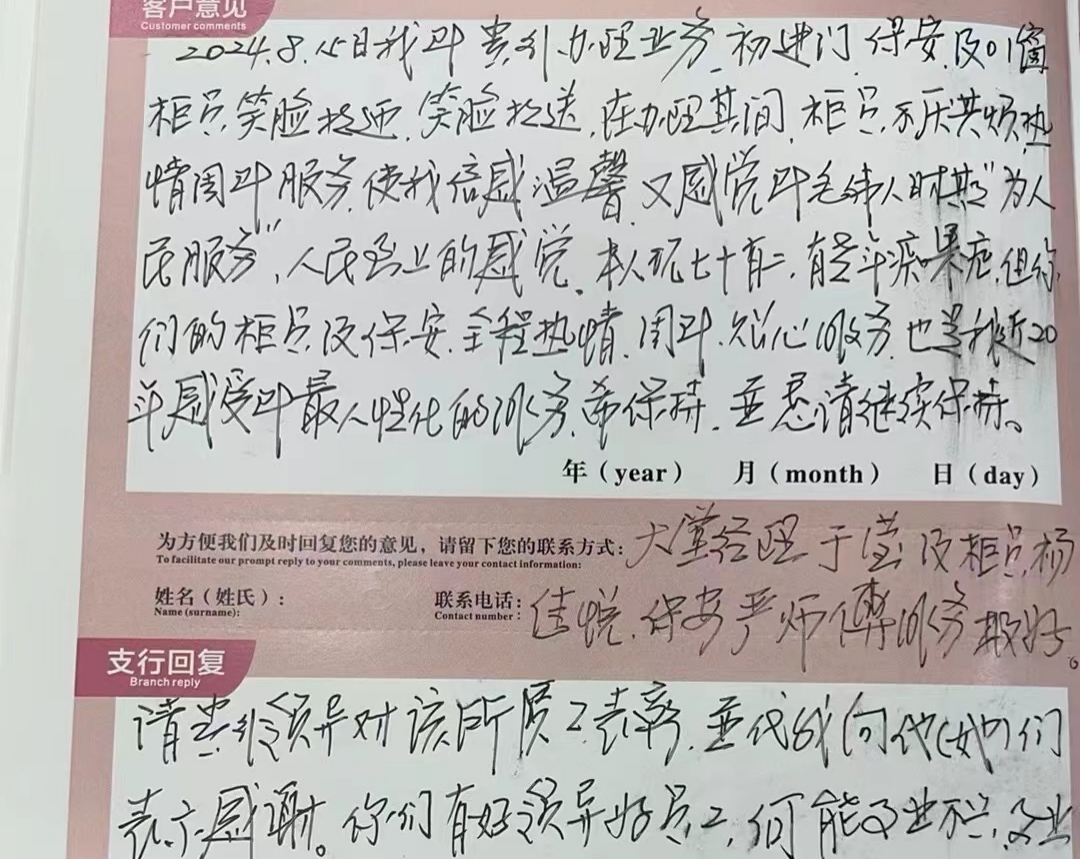 客户意见
Customer comments
2024.8.15日我到贵行办理业务,初进门,保安及01窗
柜员笑脸相迎,笑脸相送,在办理其间,柜员不厌其烦,热
情周到服务,使我倍感温馨,又感觉到毛伟人时期"为人
民服务",人民至上的感觉。本人现七十有二,有多年疾病,但你
们的柜员及保安,全程热情、周到、贴心服务,也是我近20
年感受到最人性化的服务,希保持,并恳请继续保持。
年(year) 月(month) 日(day)
为方便我们及时回复您的意见,请留下您的联系方式:大堂经理于莹及柜员杨
To facilitate our prompt reply to your comments, please leave your contact information:
姓名(姓氏): 联系电话:佳悦、保安严师傅服务最好。
Name (surname): Contact number:
支行回复
Branch reply
请贵行领导对该所员工表彰,并代我向他(她)们
表示感谢。你们有好领导好员工,何能企业不兴,企业